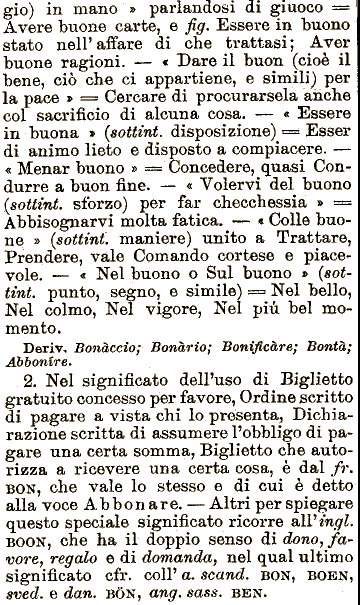 gio) in mano » parlandosi di giuoco =
Avere buone carte, e fig. Essere in buono
stato nell'affare di che trattasi; Aver
buone ragioni. — « Dare il buon (cioè il
bene, ciò che ci appartiene, e simili) per
la pace » = Cercare di procurarsela anche
col sacrificio di alcuna cosa. — « Essere
in buona » (sottint. disposizione) = Esser
di animo lieto e disposto a compiacere. —
« Menar buono » = Concedere, quasi Con-
durre a buon fine. — « Volervi del buono
(sottint. sforzo) per far checchessia » =
Abbisognarvi molta fatica. — « Colle buo-
ne » (sottint. maniere) unito a Trattare,
Prendere, vale Comando cortese e piace-
vole. — « Nel buono o Sul buono » (sot-
tint. punto, segno, e simile) = Nel bello,
Nel colmo, Nel vigore, Nel più bel mo-
mento.
Deriv. Bonàccio; Bonàrio; Bonificàre; Bontà;
Abbonire.
2. Nel significato dell'uso di Biglietto
gratuito concesso per favore, Ordine scritto
di pagare a vista chi lo presenta, Dichia-
razione scritta di assumere l'obbligo di pa-
gare una certa somma, Biglietto che auto-
rizza a ricevere una certa cosa, è dal fr.
BON, che vale lo stesso e di cui è detto
alla voce Abbonare. — Altri per spiegare
questo speciale significato ricorre all'ingl.
BOON, che ha il doppio senso di dono, fa-
vore, regalo e di domanda, nel qual ultimo
significato cfr. coll'a. scand. BON, BOEN,
sved. e dan. BÖN, ang. sass. BEN.